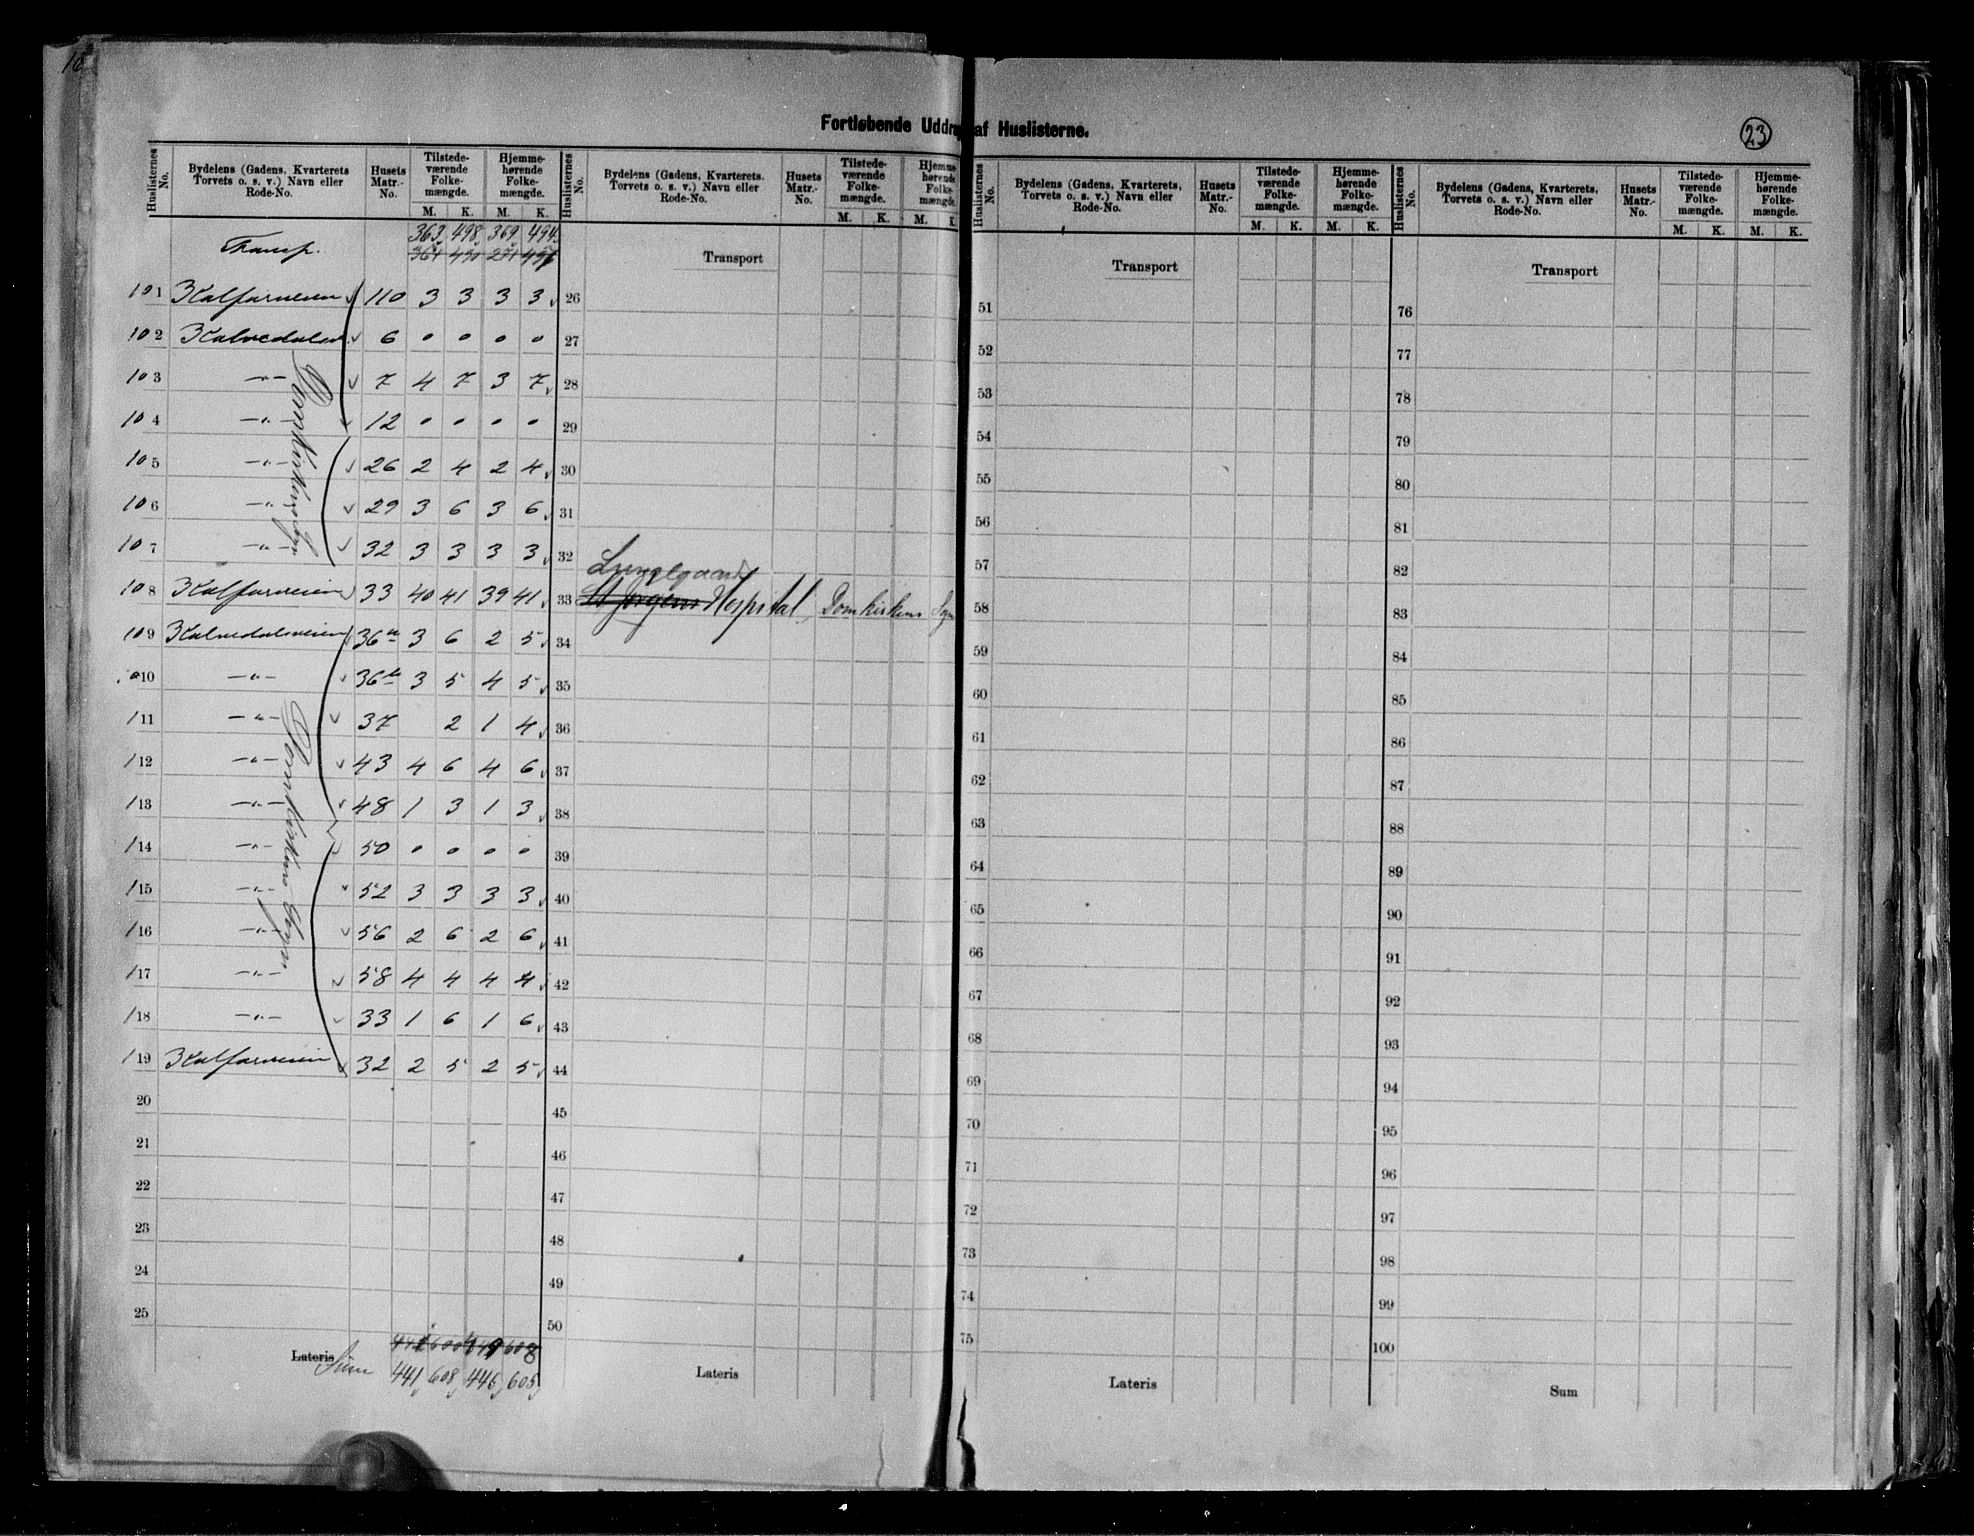 Fortløbende Uddrag af Huslisterne.
23
Huslisternes No. | Bydelens (Gadens, Kvarterets Torvets o. s. v.) Navn eller Rode-No. | Husets Matr.-No. | Tilstedeværende Folkemængde. M. K. | Hjemmehørende Folkemængde. M. K.
Transp. 363 498 369 494
101 Kalfarveien 110 3 3 3 3
102 Kalvedalen 6 0 0 0 0
103 -"- 7 4 7 3 7
104 -"- 12 0 0 0 0
105 -"- 26 2 4 2 4
106 -"- 29 3 6 3 6
107 -"- 32 3 3 3 3
108 Kalfarveien 33 40 41 39 41
109 Kalvedalsveien 36a 3 6 2 5
110 -"- 36b 3 5 4 5
111 -"- 37 2 1 4
112 -"- 43 4 6 4 6
113 -"- 48 1 3 1 3
114 -"- 50 0 0 0 0
115 -"- 52 3 3 3 3
116 -"- 56 2 6 2 6
117 -"- 58 4 4 4 4
118 -"- 33 1 6 1 6
119 Kalfarveien 32 2 5 2 5
20
21
22
23
24
25
Domkirkens Sogn
Domkirkens Sogn
Lateris
Sum 441 608 446 605
Huslisternes No. | Bydelens (Gadens, Kvarterets. Torvets o. s. v.) Navn eller Rode-No. | Husets Matr.-No. | Tilstedeværende Folkemængde. M. K. | Hjemmehørende Folkemængde. M. K.
Transport
26
27
28
29
30
31
32
Lungegaards
33 St Jørgens Hospital, Domkirkens Sogn
34
35
36
37
38
39
40
41
42
43
44
45
46
47
48
49
50
Lateris
Huslisternes No. | Bydelens (Gadens, Kvarterets, Torvets o. s. v.) Navn eller Rode-No. | Husets Matr.-No. | Tilstedeværende Folkemængde. M. K. | Hjemmehørende Folkemængde. M. K.
Transport
51
52
53
54
55
56
57
58
59
60
61
62
63
64
65
66
67
68
69
70
71
72
73
74
75
Lateris
Huslisternes No. | Bydelens (Gadens, Kvarterets, Torvets o. s. v.) Navn eller Rode-No. | Husets Matr.-No. | Tilstedeværende Folkemængde. M. K. | Hjemmehørende Folkemængde. M. K.
Transport
76
77
78
79
80
81
82
83
84
85
86
87
88
89
90
91
92
93
94
95
96
97
98
99
100
Sum